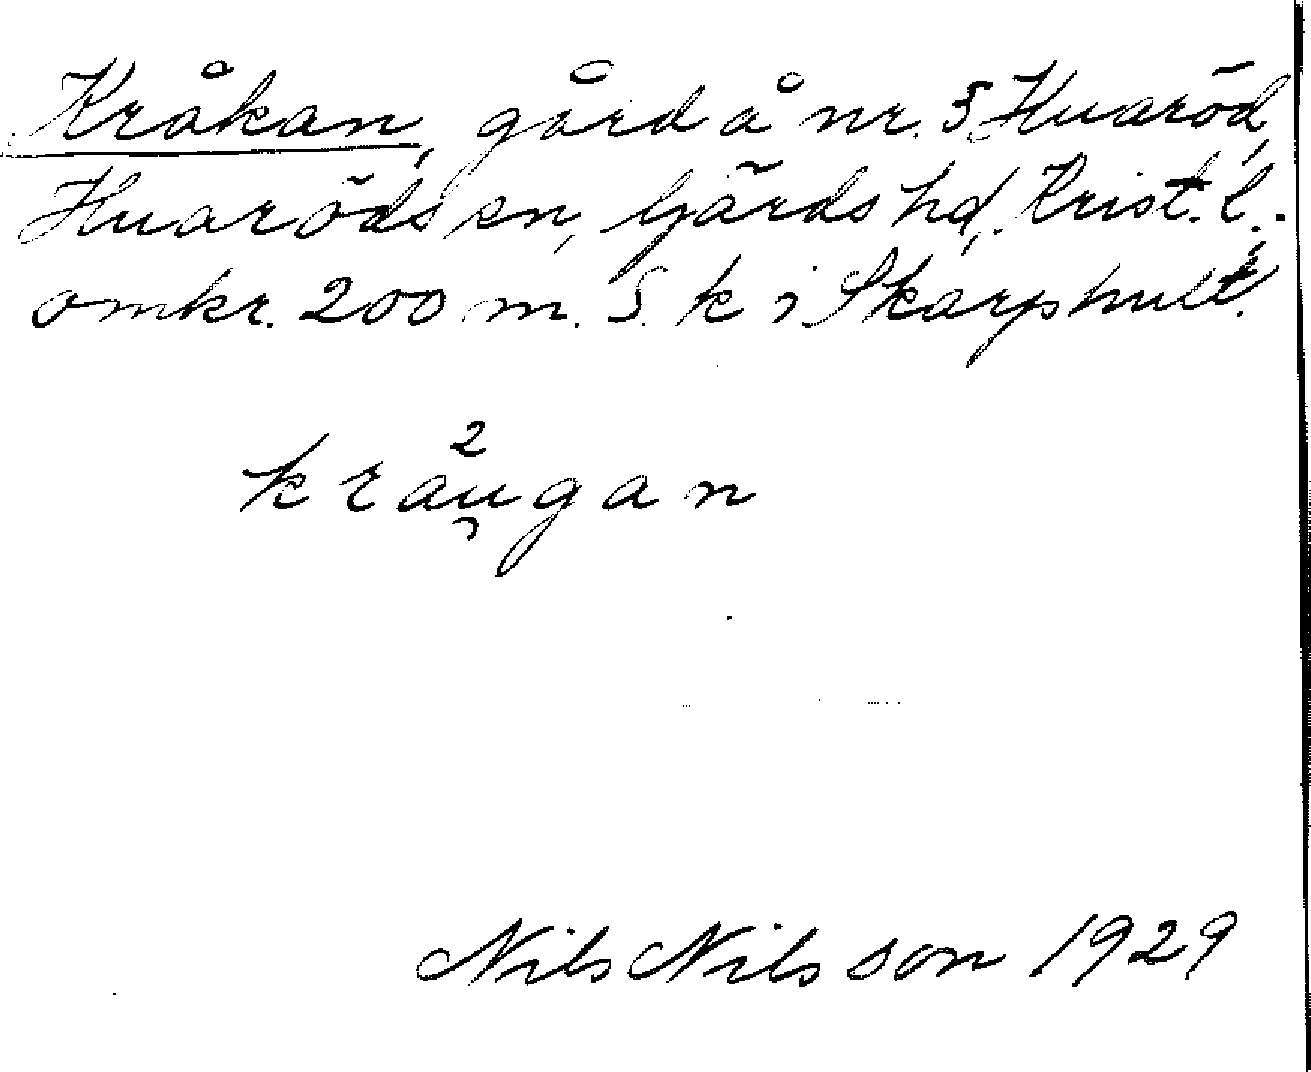 Kråkan, gård å nr. 5 Huaröd,
Huaröds sn, Gärds hd, Krist. l.
omkr. 200 m. S. k i Skarphult.
kräu̯²gan
Nils Nilsson 1929